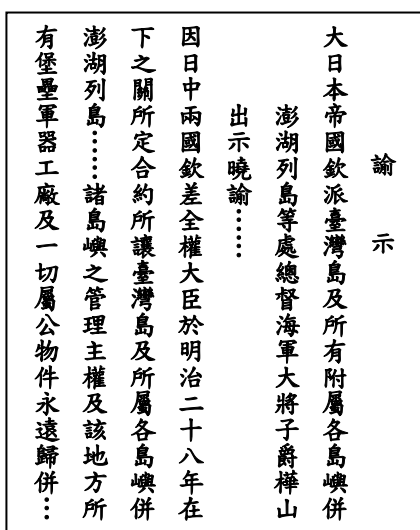 諭示
大日本帝國欽派臺灣島及所有附屬各島嶼併
澎湖列島等處總督海軍大將子爵樺山
出示曉諭……
因日中兩國欽差全權大臣於明治二十八年在
下之關所定合約所讓臺灣島及所屬各島嶼併
澎湖列島……諸島嶼之管理主權及該地方所
有堡壘軍器工廠及一切屬公物件永遠歸併…